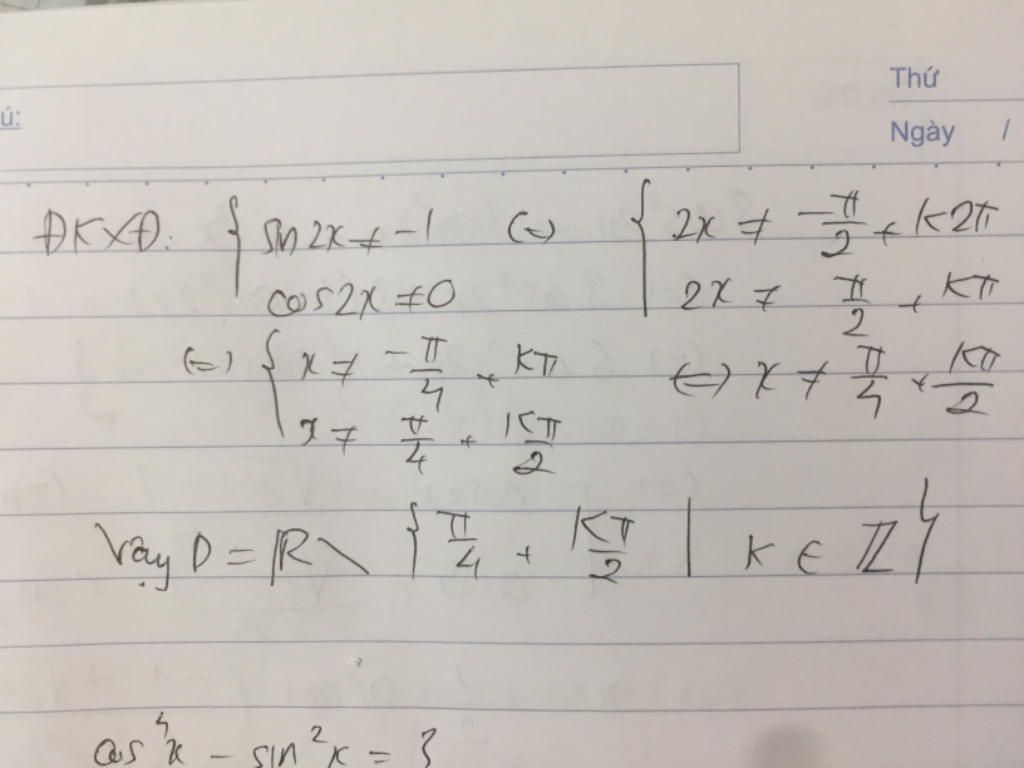 Thứ
ú:
Ngày /
ĐKXĐ: { sin2x ≠ -1 (=) { 2x ≠ -π/2 + k2π
cos2x ≠ 0 2x ≠ π/2 + kπ
(=) { x ≠ -π/4 + kπ (=) x ≠ π/4 + kπ/2
x ≠ π/4 + kπ/2
Vậy D = ℝ \ { π/4 + kπ/2 | k ∈ ℤ }
cos⁴x - sin²x = 3